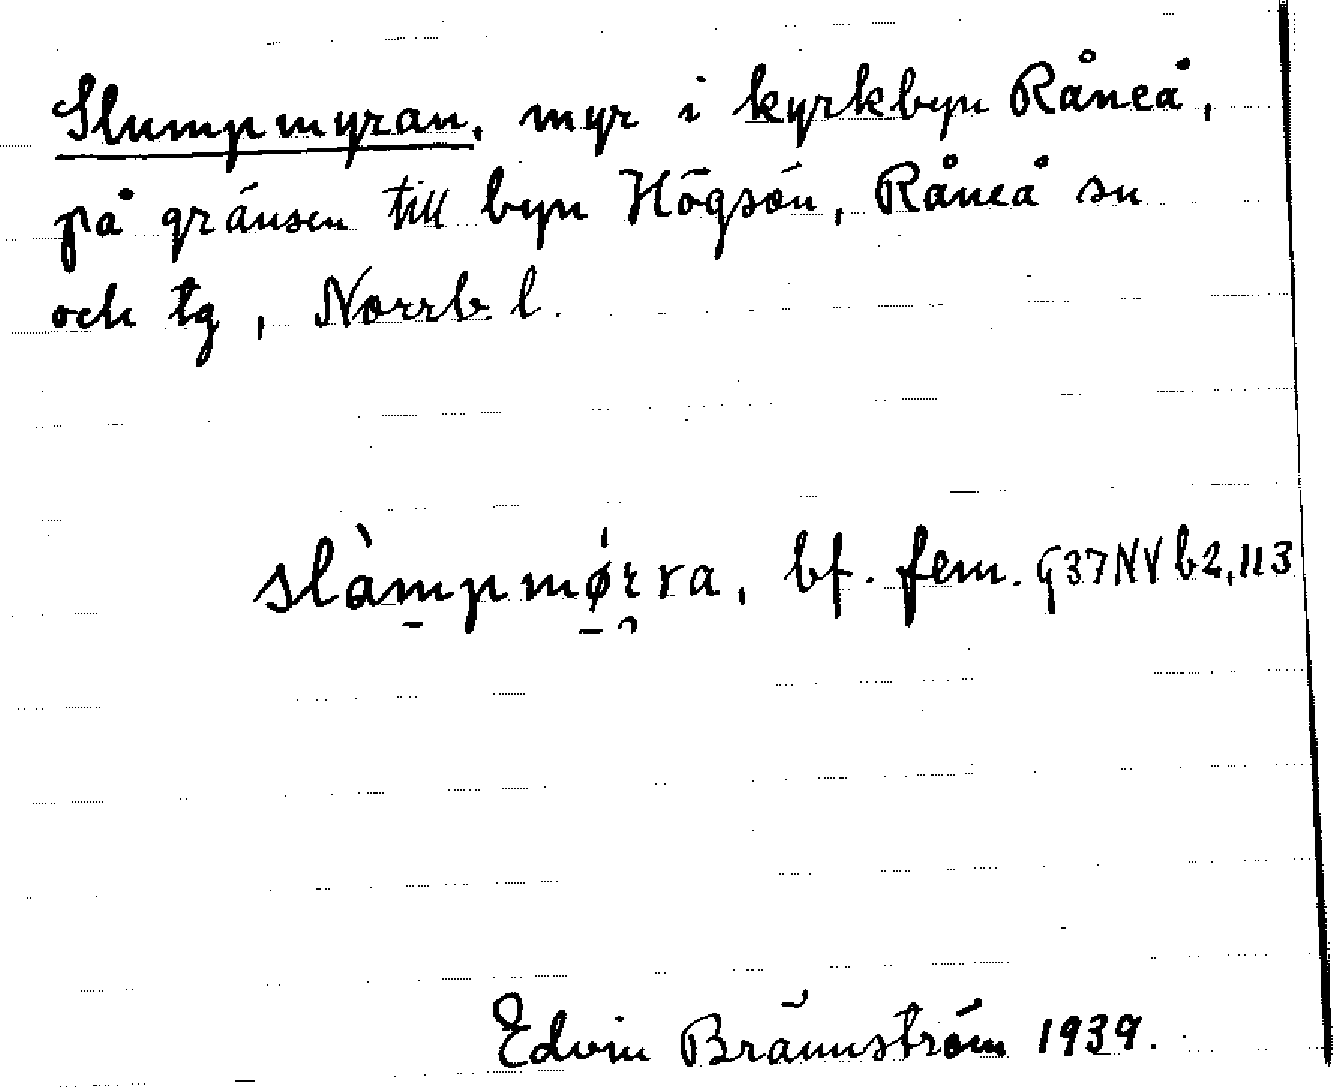 Slumpmyran, myr i kyrkbyn Råneå,
på gränsen till byn Högsön, Råneå sn
och tg, Norrb. l.
slàmpmǿrra, bf. fem. G37NV b2,113
Edvin Brännström 1939.